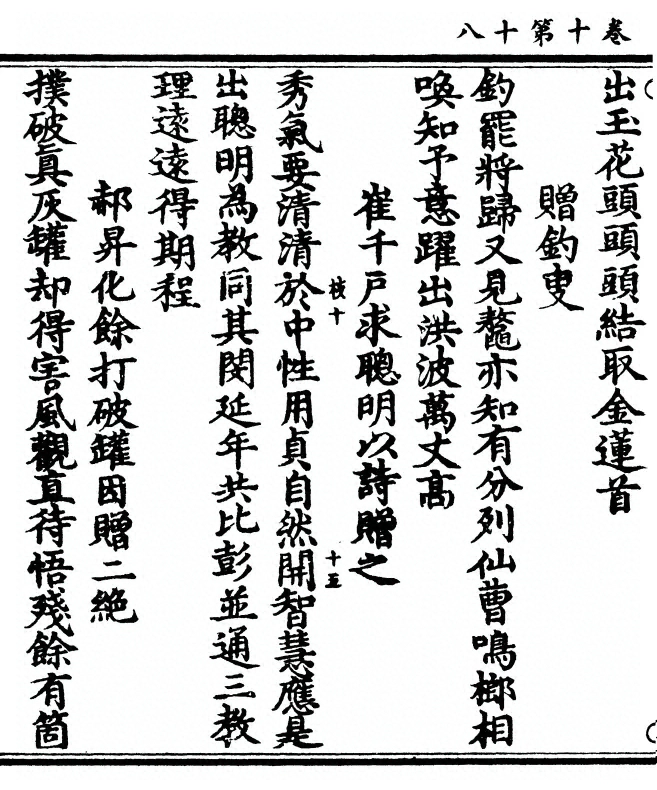 卷十第十八
出玉花頭頭頭結取金蓮首
贈釣叟
釣罷將歸又見鰲亦知有分列仙曹鳴榔相
喚知予意躍出洪波萬丈高
崔千戶求聰明以詩贈之
枝十
十五
秀氣要清清於中性用貞自然開智慧應是
出聰明為教同其閔延年共比彭並通三教
理遠遠得期程
郝昇化餘打破罐因贈二絶
撲破真灰罐却得害風觀直待悟殘餘有箇